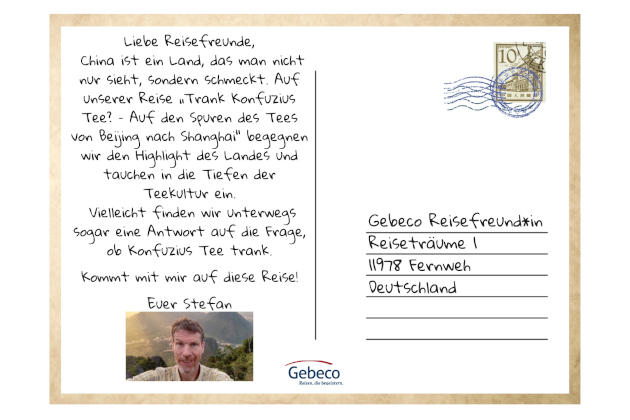 Liebe Reisefreunde,
China ist ein Land, das man nicht
nur sieht, sondern schmeckt. Auf
unserer Reise „Trank Konfuzius
Tee? - Auf den Spuren des Tees
von Beijing nach Shanghai" begegnen
wir den Highlight des Landes und
tauchen in die Tiefen der
Teekultur ein.
Vielleicht finden wir unterwegs
sogar eine Antwort auf die Frage,
ob Konfuzius Tee trank.
Kommt mit mir auf diese Reise!
Euer Stefan
10
Gebeco Reisefreund*in
Reiseträume 1
11978 Fernweh
Deutschland
Gebeco
Reisen, die begeistern.